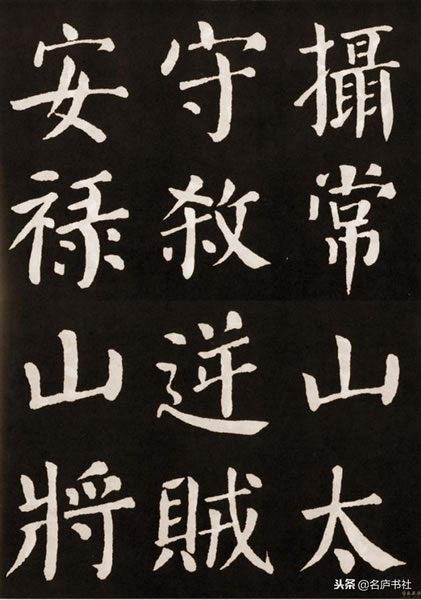 攝常山太
守殺逆賊
安禄山將
头条 @名庐书社